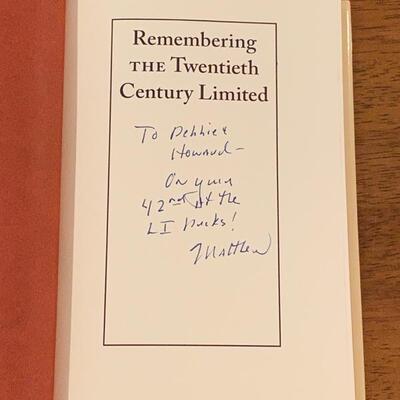 Remembering
THE Twentieth
Century Limited
To Debbie &
Howard –
On your
42nd at the
LI Ducks!
Matthew